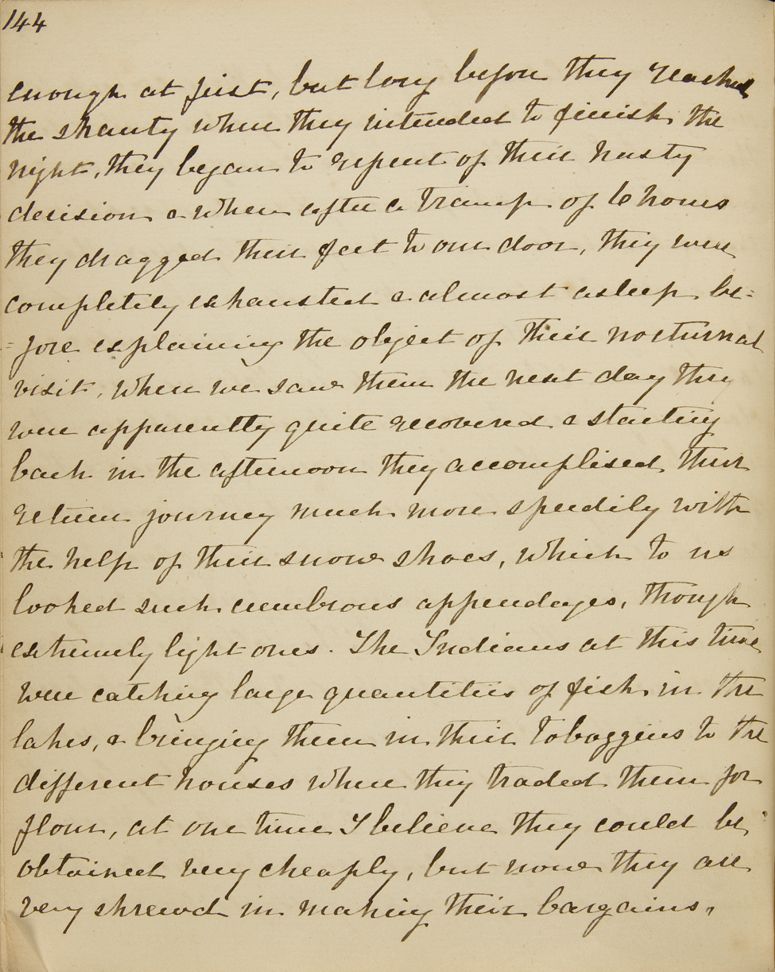 144
enough at first, but long before they reached
the shanty where they intended to finish the
night, they began to repent of their hasty
decision & when after a tramp of 6 hours
they dragged their feet to our door, they were
completely exhausted & almost asleep be=
=fore explaining the object of their nocturnal
visit, when we saw them the next day they
were apparently quite recovered & starting
back in the afternoon they accomplised their
return journey much more speedily with
the help of their snow shoes, which to us
looked such cumbrous appendages, though
extremely light ones. The Indians at this time
were catching large quantities of fish in the
lakes, & bringing them in their toboggins to the
different houses where they traded them for
flour, at one time I believe they could be
obtained very cheaply, but now they are
very shrewd in making their bargains,